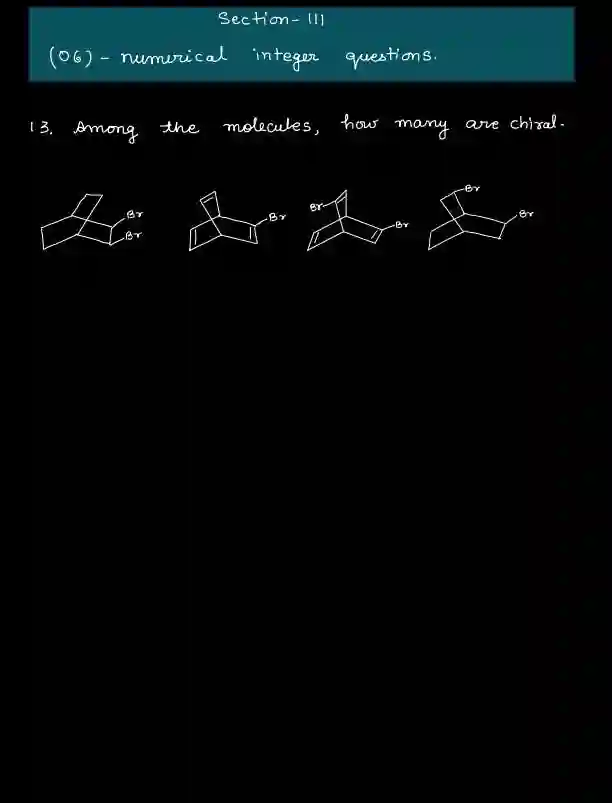 Section-III
(06) - numerical integer questions.
13. Among the molecules, how many are chiral.
Br
Br
Br
Br
Br
Br
Br